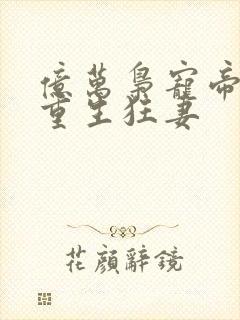 億萬梟寵帝
重生狂妻
花顏辭鏡